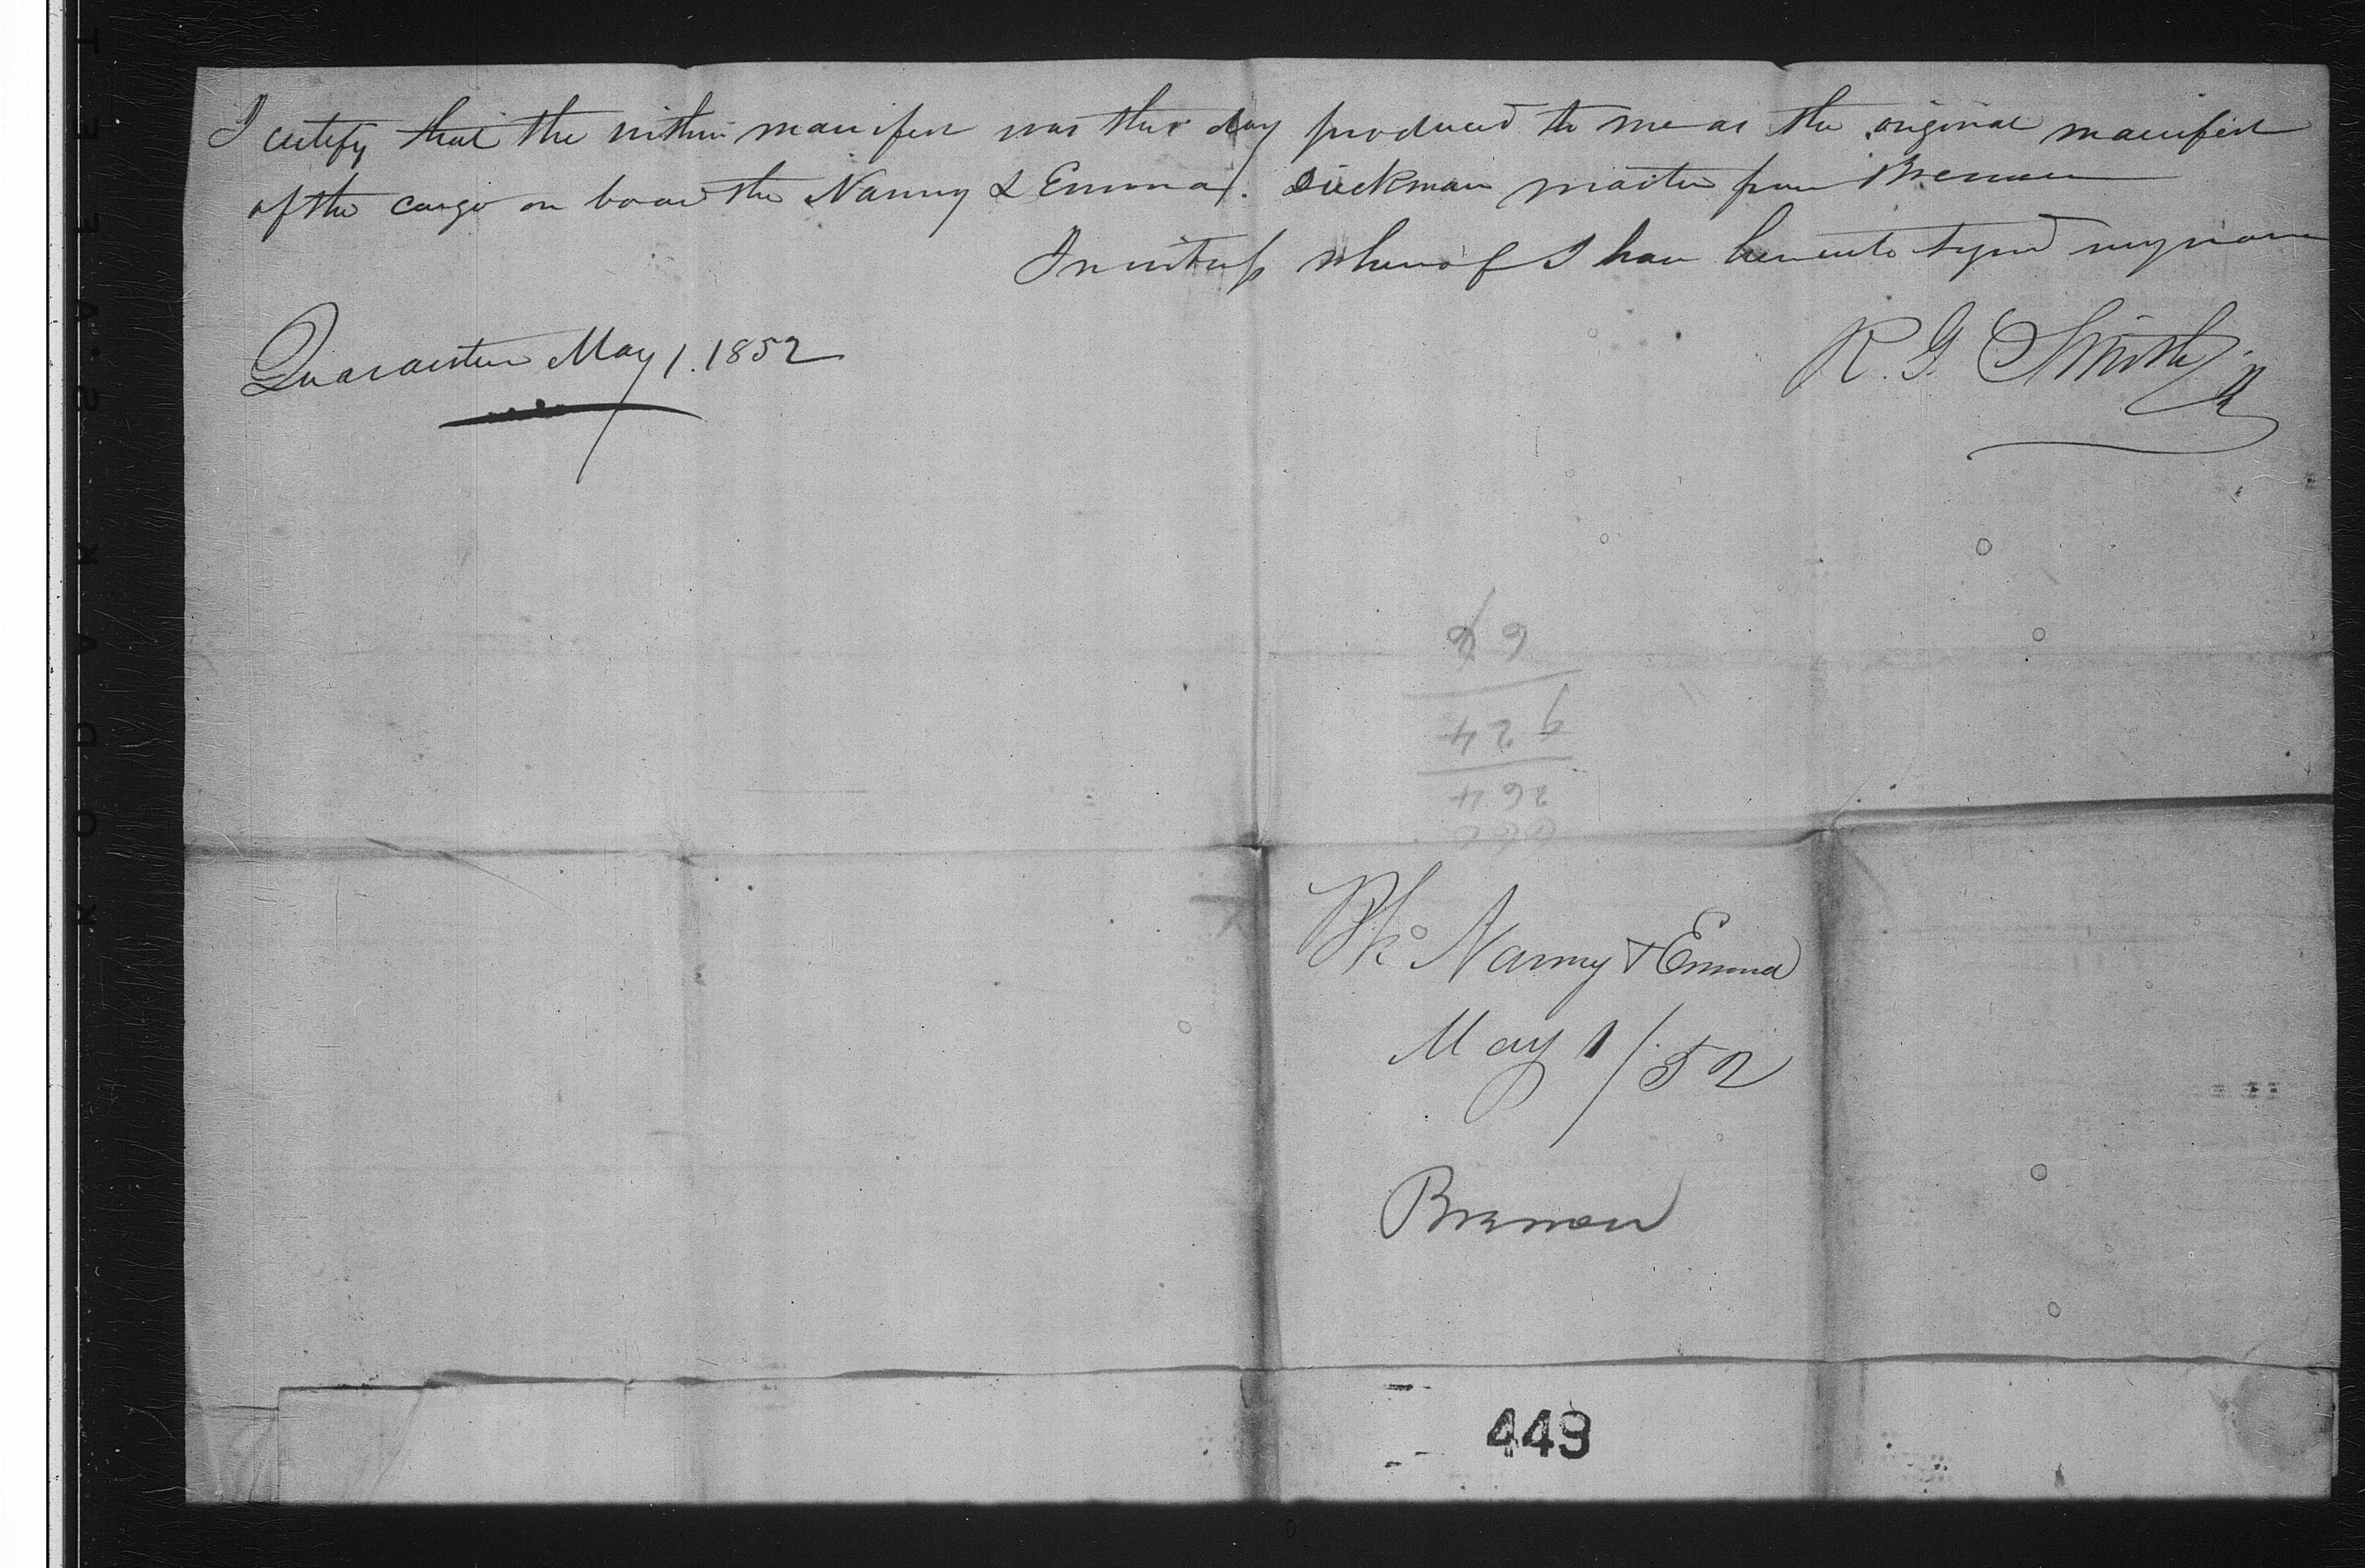 I certify that the within manifest was this day produced to me as the original manifest
of the cargo on board the Nanny & Emma. Dieckman master from Bremen
In witness whereof I have hereunto signd my name
Quarantine May 1. 1852
R. G. Smith
69
924
264
660
Bk° Nanny & Emma
May 1/52
Bremen
449
KODAK SAFETY